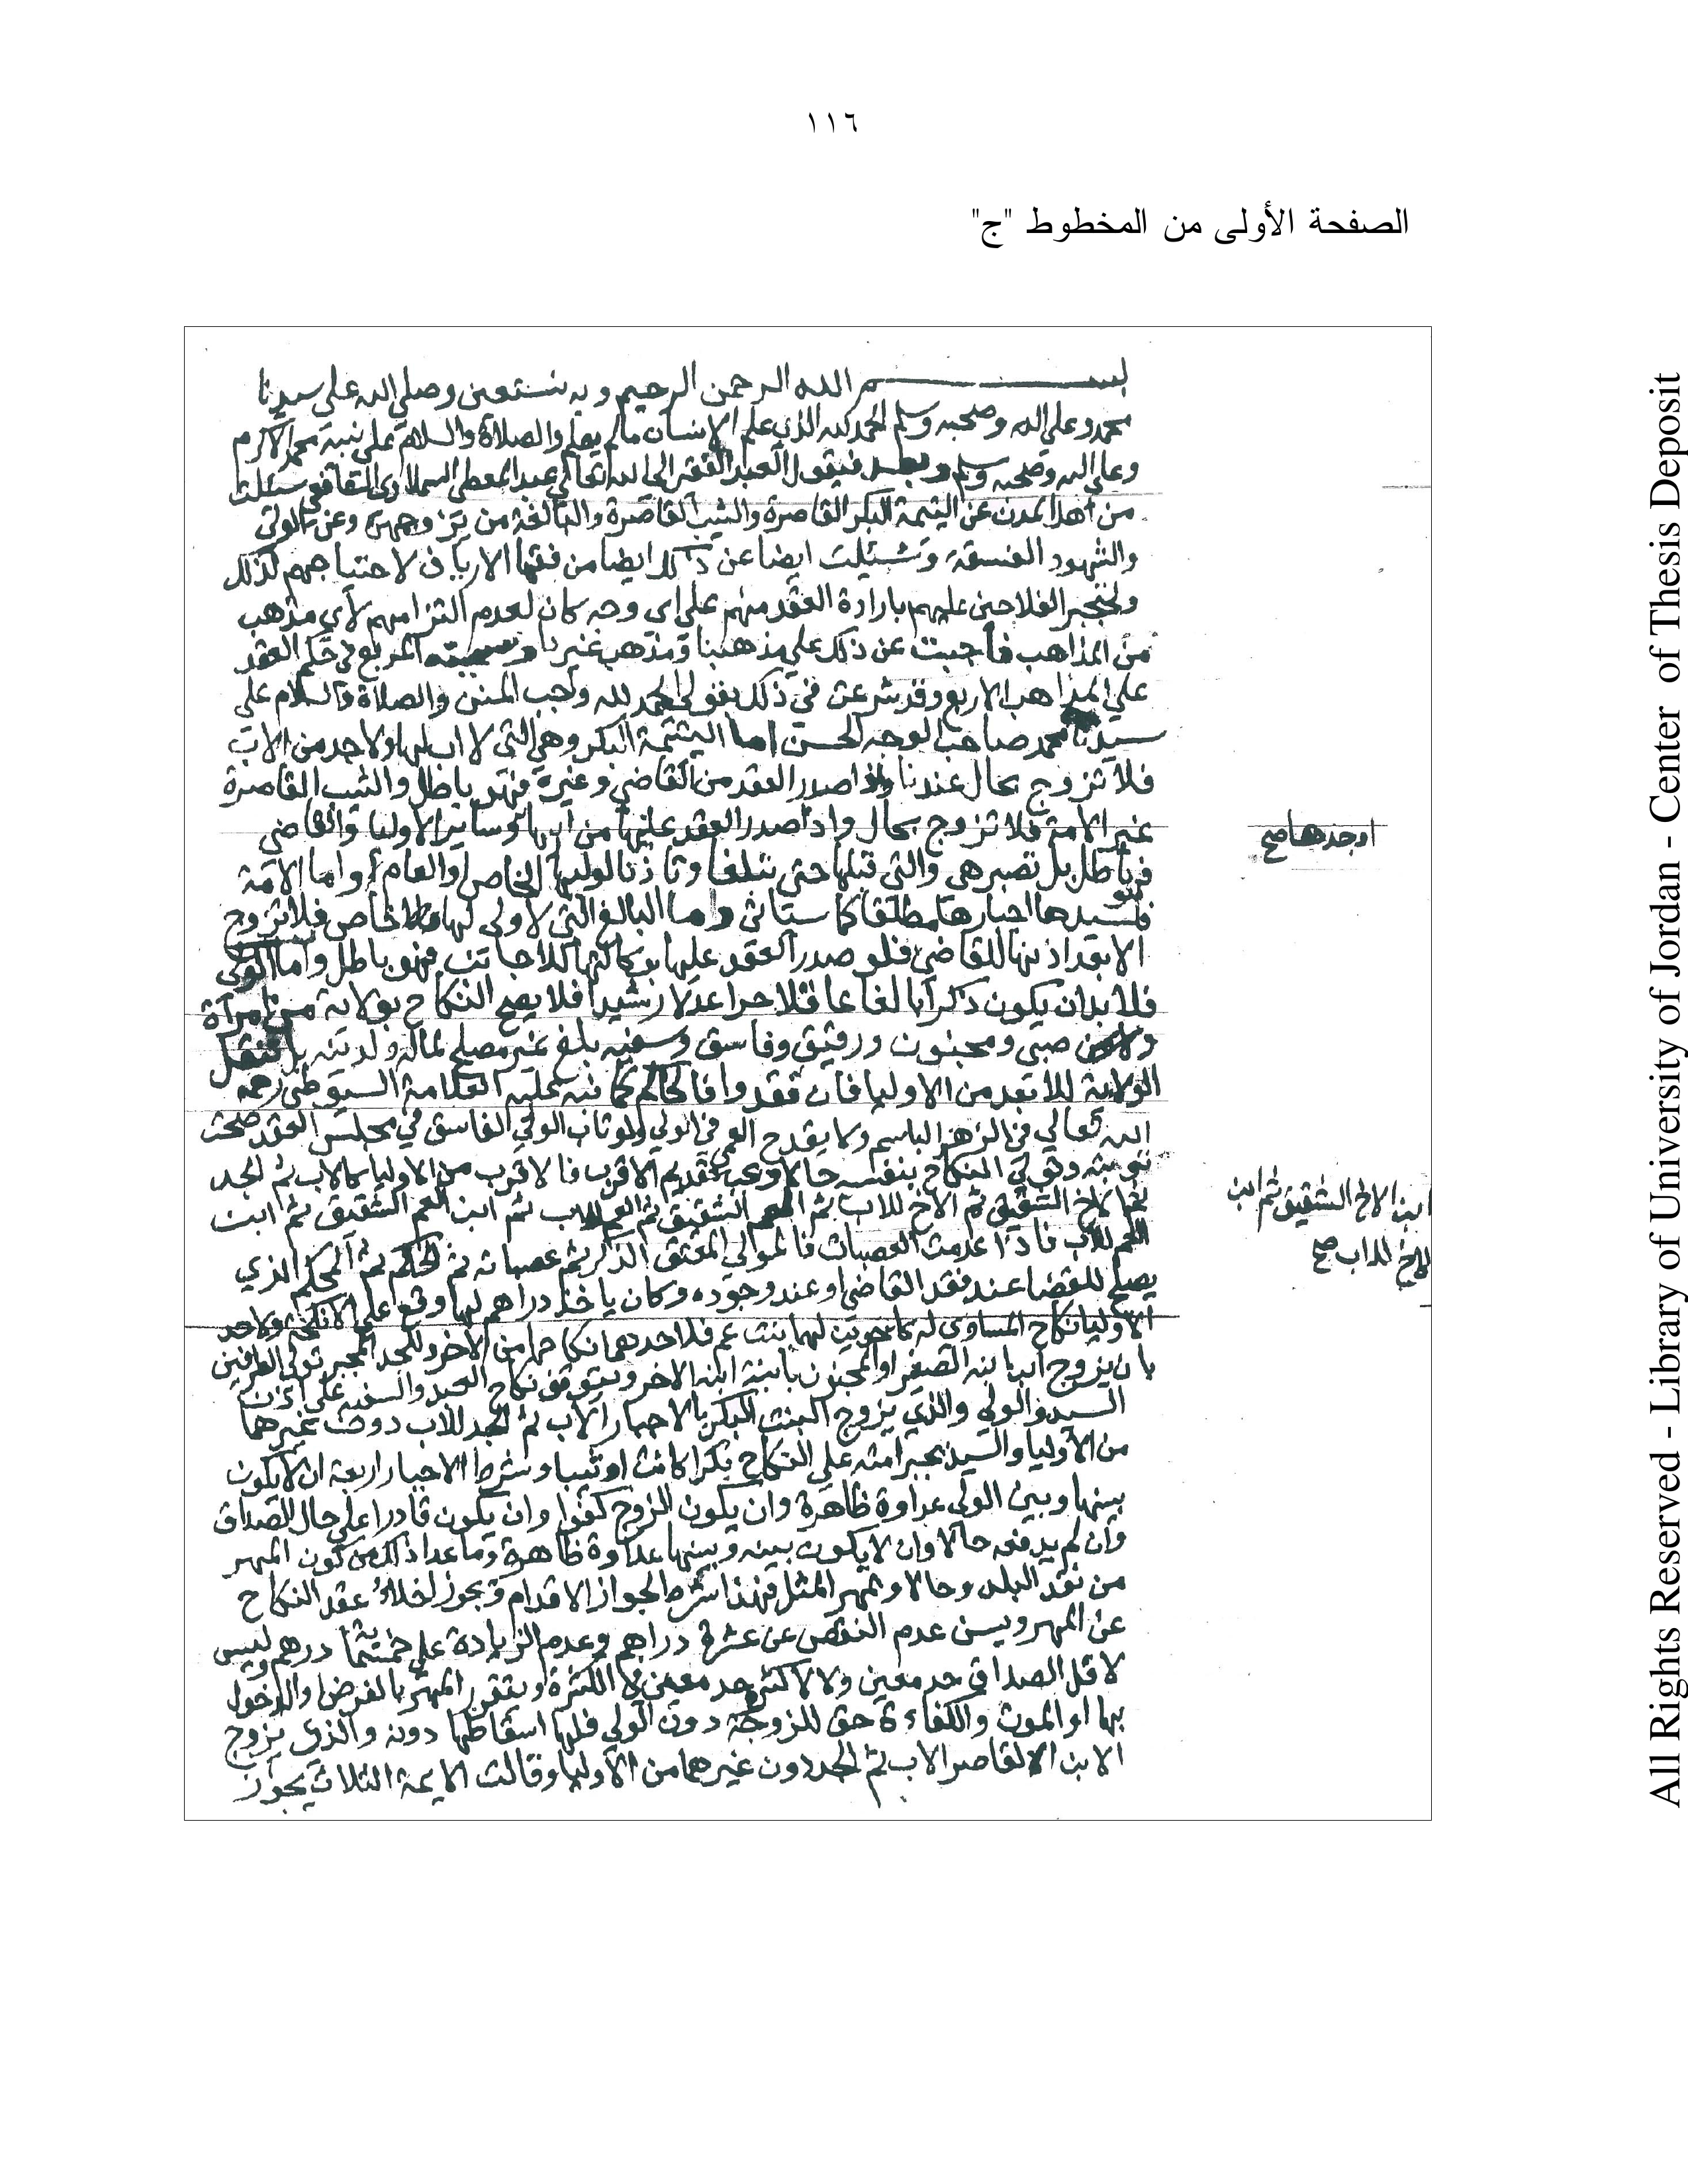 ١١٦
الصفحة الأولى من المخطوط "ج"
بسم الله الرحمن الرحيم وبه نستعين وصلي الله علي سيدنا
محمد وعلي اله وصحبه وسلم الحمد لله الذي علم الانسان مالم يعلم والصلاة والسلام علي نبيه محمد الاكرم
وعلي اله وصحبه وسلم وبعد فيقول العبد الفقير الي الله تعالي عبد المعطي السملاوي الشافعي سئلت
من اهل المدن عن اليتيمة البكر القاصرة والثيب القاصرة والبالغة من يزوجهن وعن الولي
والشهود الفسقة وسئلت ايضا عن ذلك ايضا من فقها الارياف لاحتياجهم لذلك
ولتجبر الفلاحين عليهم بارادة العقد منهم علي اي وجه كان لعدم التزامهم لأي مذهب
من المذاهب فأجبت عن ذلك علي مذهبنا ومذهب غيرنا وسميته المربع في حكم العقد
علي المذاهب الاربع وقد شرعت في ذلك بقولي الحمد لله واجب المنن والصلاة والسلام علي
سيدنا محمد صاحب الوجه الحسن اما اليتيمة البكر وهي التي لا اب لها ولا جد من الاب
فلا تزوج بحال عندنا واذا صدر العقد من القاضي وغيره فهو باطل والثيب القاصرة
غير الامة فلا تزوج بحال واذا صدر العقد عليها من ابيها وسائر الاوليا والقاضي
اوجدها صح
فباطل بل تصبر هي والتي قبلها حتي تبلغا وتأذنا لوليها الخاص او العام واما الامة
فلسيدها اجبارها مطلقا كما ستاتي واما البالغ التي لا ولي لها خاص فلا تزوج
الا بعد اذنها للقاضي فلو صدر العقد عليها بوكالتها للاجانب فهو باطل واما الولي
فلا بد ان يكون ذكرا بالغا عاقلا حرا عدلا رشيدا فلا يصح النكاح بولاية من امرأة
ولا صبي ومجنون ورقيق وفاسق وسفيه بلغ غير مصلح لماله ولدينه بل تنتقل
الولاية للابعد من الاوليا فان فقدوا فالحاكم كما نبه عليه العلامة السيوطي رحمه
الله تعالي في الزهر الباسم ولا يقدح العمي في الولي ولو تاب الولي الفاسق في مجلس العقد صحت
توبته وتولي النكاح بنفسه حالا ويجب تقديم الاقرب فالاقرب من الاوليا كالاب ثم الجد
ثم الاخ الشقيق ثم الاخ للاب ثم العم الشقيق ثم العم للاب ثم ابن العم الشقيق ثم ابن
ابن الاخ الشقيق ثم ابن
الاخ للاب صح
العم للاب فاذا عدمت العصبات فالموالي المعتق الذكر ثم عصباته ثم الحاكم ثم المحكم الذي
يصلح للقضا عند فقد القاضي او عند وجوده وكان ياخذ دراهم لها وقع علي الانكحة ولاحد
الاوليا نكاح المساوي له كاخوين لهما بنت عم فلاحدهما نكاحها من الاخر وللجد المجبر تولي الطرفين
بان يزوج ابن ابنه الصغير او المجنون بابنة ابنه الاخر ويتوقف نكاح العبد والسفيه علي اذن
السيد والولي والذي يزوج البنت البكر بالاجبار الاب ثم الجد للاب دون غيرهما
من الاوليا والسيد يجبر امته علي النكاح بكرا كانت او ثيبا وشرط الاجبار اربعة ان لا يكون
بينها وبين الولي عداوة ظاهرة وان يكون الزوج كفؤا وان يكون قادرا علي حال الصداق
وان لم يدفعه حالا وان لا يكون بينه وبينها عداوة ظاهرة وما عدا ذلك من كون المهر
من نقد البلد وحالا وبمهر المثل فهذا شرط لجواز الاقدام ويجوز اخلاء عقد النكاح
عن المهر ويسن عدم النقص عن عشرة دراهم وعدم الزيادة علي خمسمائة درهم وليس
لاقل الصداق حد معين ولا لاكثره حد معين في الكثرة ويتقرر المهر بالفرض والدخول
بها او الموت والكفاءة حق للزوجة دون الولي فلها اسقاطها دونه والذي يزوج
الابن القاصر الاب ثم الجد دون غيرهما من الاوليا وقالت الايمة الثلاث يجوز
All Rights Reserved - Library of University of Jordan - Center of Thesis Deposit